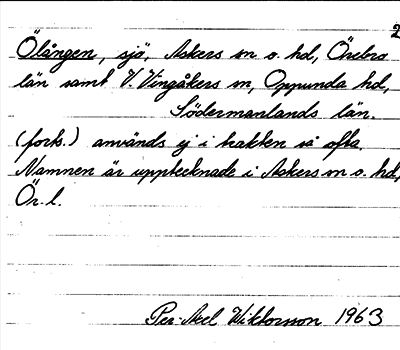 2
Ölången, sjö, Askers sn o. hd, Örebro
län samt V. Vingåkers sn, Oppunda hd,
Södermanlands län.
(forts.) används ej i trakten så ofta.
Namnen är upptecknade i Askers sn o. hd,
Ör. l.
Per-Axel Wiktorsson 1963